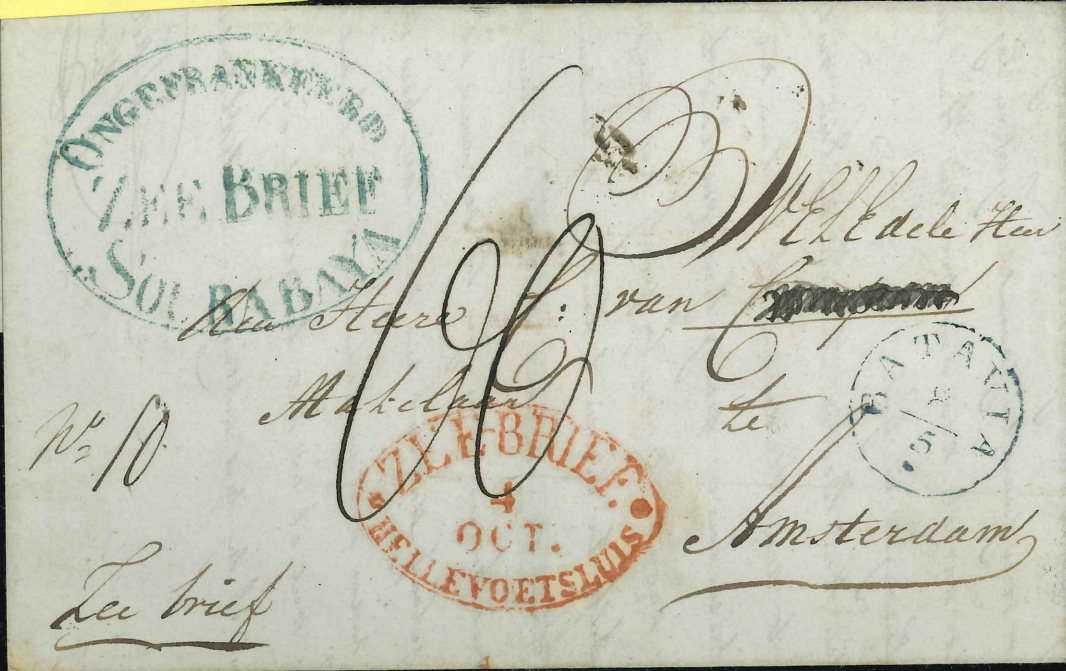 ONGEFRANKEERD
ZEE BRIEF
SOURABAYA
WelEdele Heer
Den Heere J: van
Makelaar te
BATAVIA
5
No 10
60
ZEE-BRIEF.
4
OCT.
HELLEVOETSLUIS
Amsterdam
Zee brief